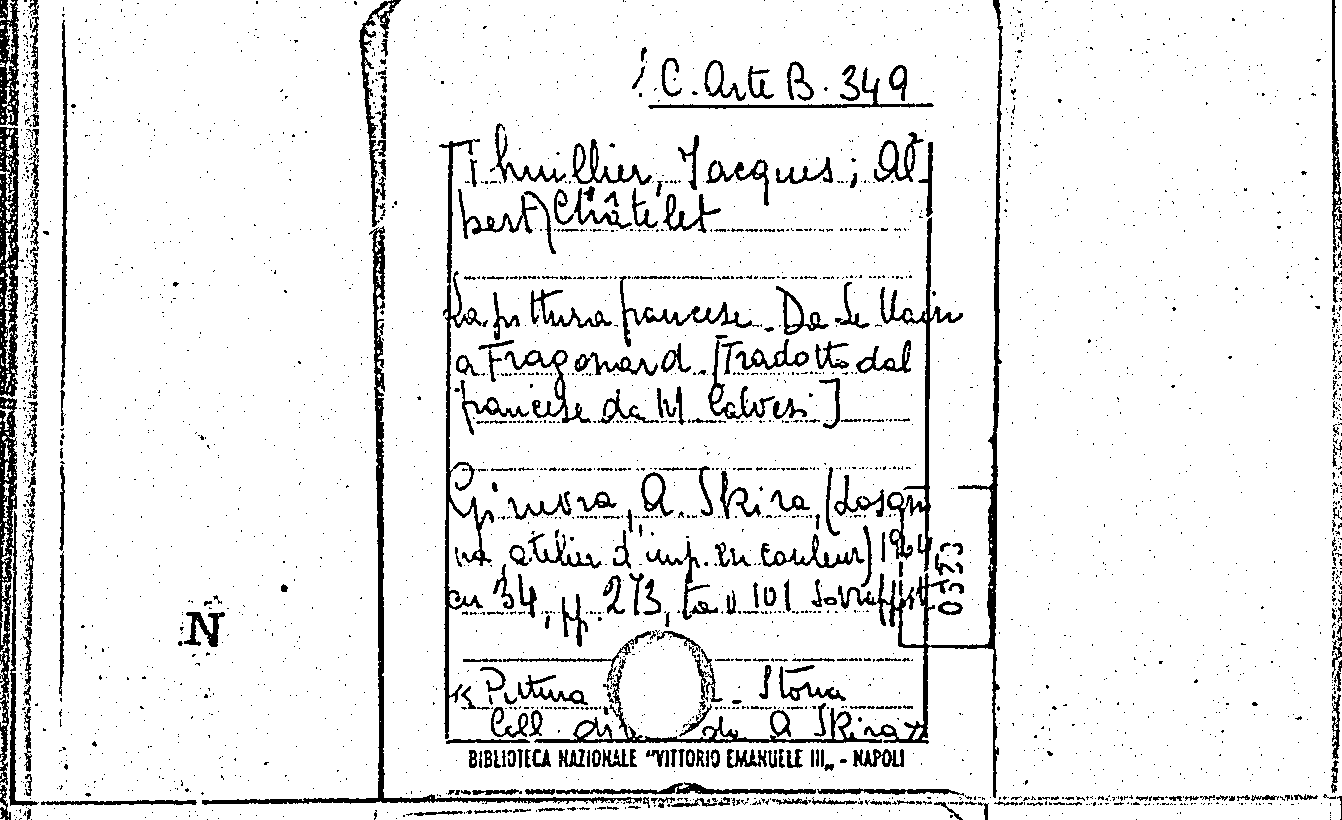 C. Arte B. 349
Thuillier, Jacques; Al-
bert Châtelet
La pittura francese. Da Le Nain
a Fragonard. [Tradotto dal
francese da M Calvesi]
Ginevra, A. Skira, (Losan
na, atelier d'imp. en couleur) 1964
cm 34, pp. 273, tav 101 sovrapposte
0523
N
« Pittura - Storia
Coll. di da A Skira »
BIBLIOTECA NAZIONALE "VITTORIO EMANUELE III„ - NAPOLI